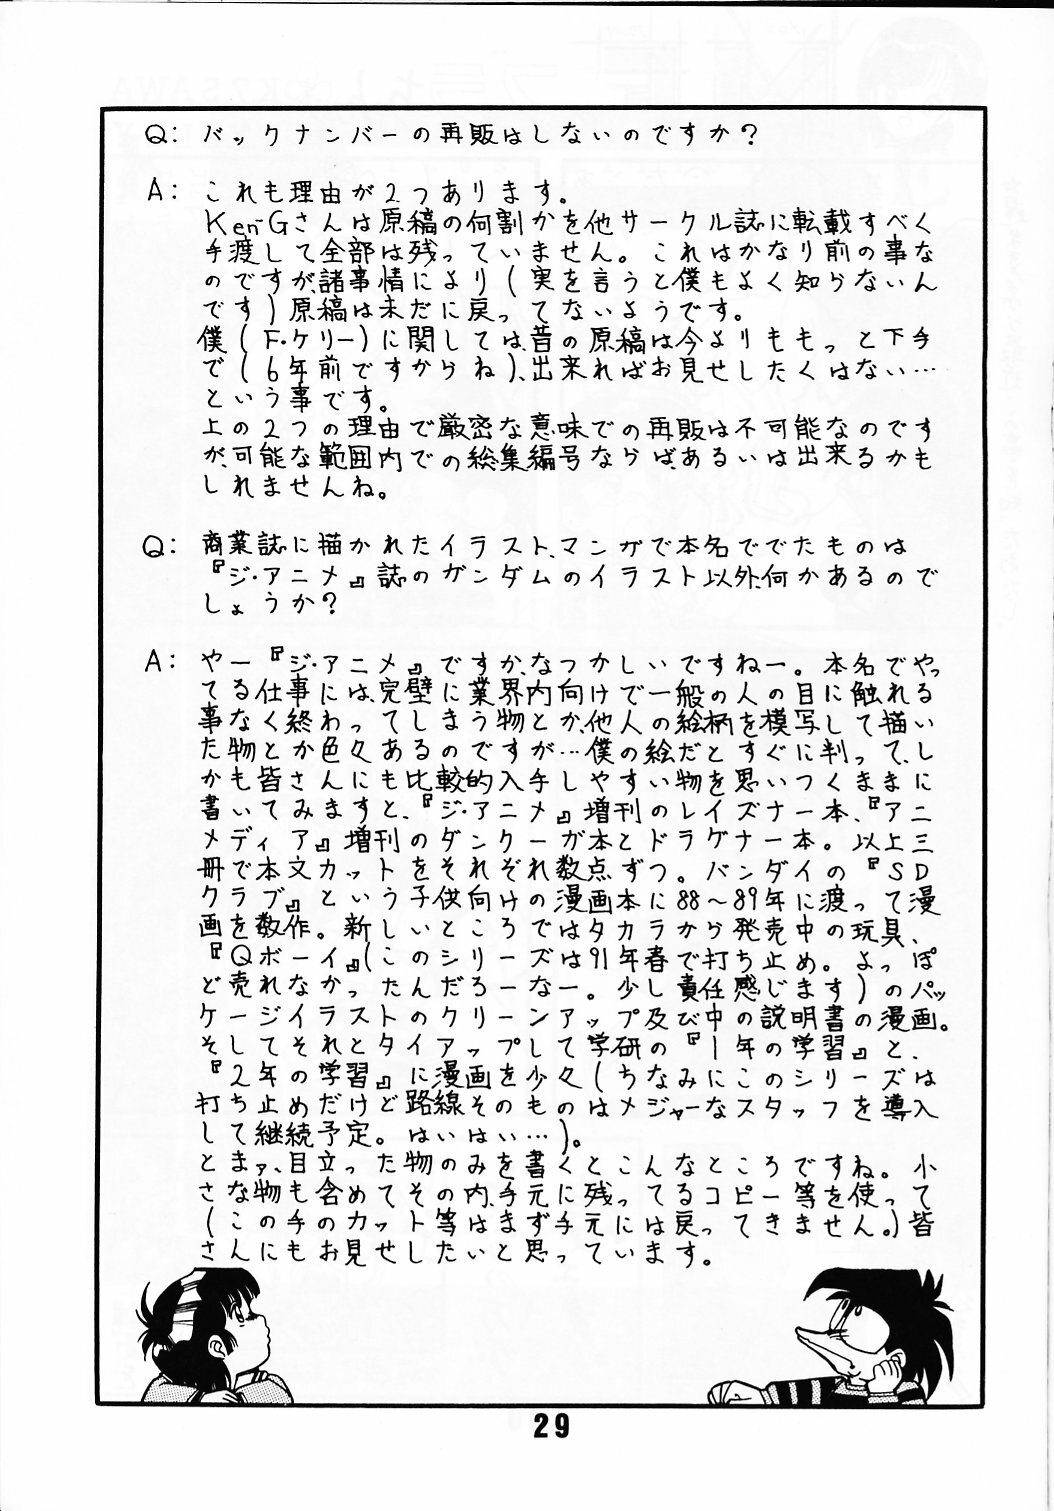 Q: バックナンバーの再販はしないのですか？
A: これも理由が2つあります。
Ken-Gさんは原稿の何割かを他サークル誌に転載すべく
手渡して全部は残っていません。これはかなり前の事な
のですが、諸事情により(実を言うと僕もよく知らないん
です)原稿は未だに戻ってないようです。
僕(F・ケリー)に関しては、昔の原稿は今よりももっと下手
で(6年前ですからね)、出来ればお見せしたくはない…
という事です。
上の2つの理由で厳密な意味での再販は不可能なのです
が、可能な範囲内での総集編号ならば、あるいは出来るかも
しれませんね。
Q: 商業誌に描かれたイラスト、マンガで本名ででたものは
『ジ・アニメ』誌のガンダムのイラスト以外、何かあるので
しょうか？
A: やー『ジ・アニメ』ですか、なつかしいですねー。本名でやっ
てる仕事には、完璧に業界内向けで一般の人の目に触れる
事なく終わってしまう物とか、他人の絵柄を模写して描い
た物とか色々あるのですが…僕の絵だとすぐに判って、し
かも皆さんにも比較的入手しやすい物を思いつくままに
書いてみますと、『ジ・アニメ』増刊のレイズナー本、『アニ
メディア』増刊のダンクーガ本とドラグナー本。以上三
冊で本文カットをそれぞれ数点ずつ。バンダイの『SD
クラブ』という子供向けの漫画本に88～89年に渡って漫
画を数作。新しいところではタカラから発売中の玩具、
『Qボーイ』(このシリーズは91年春で打ち止め。よっぽ
ど売れなかったんだろーなー。少し責任感じます)のパッ
ケージイラストのクリーンアップ及び中の説明書の漫画。
そしてそれとタイアップして学研の『1年の学習』と、
『2年の学習』に漫画を少々(ちなみにこのシリーズは
打ち止めだけど路線そのものはメジャーなスタッフを導入
して継続予定。はいはい…)。
とまァ、目立った物のみを書くとこんなところですね。小
さな物も含めて、その内、手元に残ってるコピー等を使って
(この手のカット等は、まず手元には戻ってきません。)皆
さんにもお見せしたいと思っています。
29